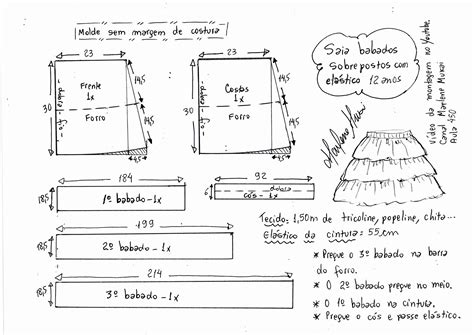 Molde sem margem de costura
23
30
Frente
1x
Forro
dobra
fio
14,5
14,5
4,5
23
30
Costas
1x
Forro
14,5
14,5
4,5
Saia babados
sobrepostos com
elástico 12 anos
Marlene Mukai
Vídeo da montagem no Youtube.
Canal Marlene Mukai
Aula 450
184
18,5
1º babado - 1x
92
6
dobra
cós - 1x
199
18,5
2º babado - 1x
214
18,5
3º babado - 1x
Tecido: 1,50m de tricoline, popeline, chita...
Elástico da cintura: 55cm
* Pregue o 3º babado na barra
do forro.
* O 2º babado pregue no meio.
* O 1º babado na cintura.
* Pregue o cós e passe elástico.